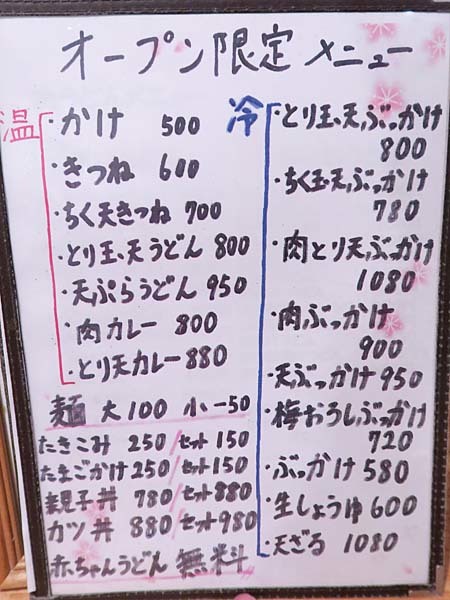 オープン限定 メニュー
温
・かけ 500
・きつね 600
・ちく天きつね 700
・とり玉、天うどん 800
・天ぷらうどん 950
・肉カレー 800
・とり天カレー 880
麺 大100 小-50
たきこみ 250/セット150
たまごかけ 250/セット150
親子丼 780/セット880
カツ丼 880/セット980
赤ちゃんうどん 無料
冷
・とり玉、天ぶっかけ
800
・ちく玉天ぶっかけ
780
・肉とり天ぶっかけ
1080
・肉ぶっかけ
900
・天ぶっかけ 950
・梅おろしぶっかけ
720
・ぶっかけ 580
・生しょうゆ 600
・天ざる 1080